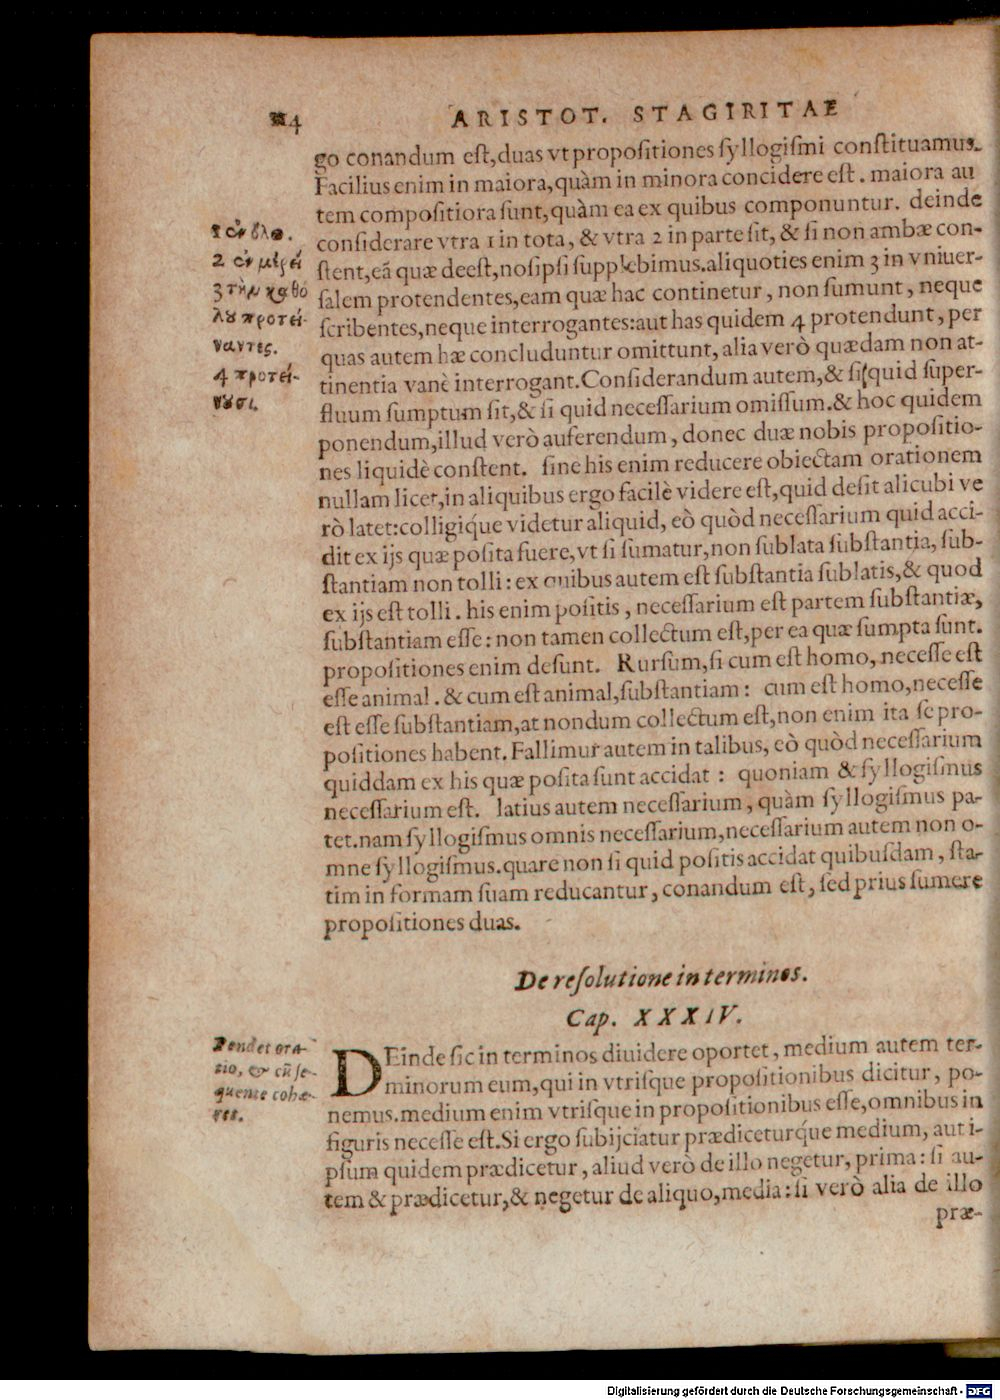 4 ARISTOT. STAGIRITAE
go conandum eſt,duas vt propoſitiones ſyllogiſmi conſtituamus.
Facilius enim in maiora,quàm in minora concidere eſt . maiora au
tem compoſitiora ſunt,quàm ea ex quibus componuntur. deinde
conſiderare vtra 1 in tota, & vtra 2 in parte ſit, & ſi non ambæ con-
ſtent,eã quæ deeſt,noſipſi ſupplebimus.aliquoties enim 3 in vniuer-
ſalem protendentes,eam quæ hac continetur, non ſumunt, neque
ſcribentes,neque interrogantes:aut has quidem 4 protendunt, per
quas autem hæ concluduntur omittunt, alia verò quædam non at-
tinentia vanè interrogant.Conſiderandum autem,& ſi quid ſuper-
fluum ſumptum ſit,& ſi quid neceſſarium omiſſum.& hoc quidem
ponendum,illud verò auferendum, donec duæ nobis propoſitio-
nes liquidè conſtent. ſine his enim reducere obiectam orationem
nullam licet,in aliquibus ergo facilè videre eſt,quid deſit alicubi ve
rò latet:colligiq́ue videtur aliquid, eò quòd neceſſarium quid acci-
dit ex ijs quæ poſita fuere,vt ſi ſumatur,non ſublata ſubſtantia, ſub-
ſtantiam non tolli: ex quibus autem eſt ſubſtantia ſublatis,& quod
ex ijs eſt tolli. his enim poſitis, neceſſarium eſt partem ſubſtantiæ,
ſubſtantiam eſſe: non tamen collectum eſt,per ea quæ ſumpta ſunt.
propoſitiones enim deſunt. Rurſum,ſi cum eſt homo, neceſſe eſt
eſſe animal. & cum eſt animal,ſubſtantiam: cum eſt homo,neceſſe
eſt eſſe ſubſtantiam,at nondum collectum eſt,non enim ita ſe pro-
poſitiones habent. Fallimur autem in talibus, eò quòd neceſſarium
quiddam ex his quæ poſita ſunt accidat: quoniam & ſyllogiſmus
neceſſarium eſt. latius autem neceſſarium, quàm ſyllogiſmus pa-
tet.nam ſyllogiſmus omnis neceſſarium,neceſſarium autem non o-
mne ſyllogiſmus.quare non ſi quid poſitis accidat quibuſdam, ſta-
tim in formam ſuam reducantur, conandum eſt, ſed prius ſumere
propoſitiones duas.
1 ἐν ὅλῳ.
2 ἐν μέρει
3 τὴν καθό
λου προτεί-
ναντες.
4 προτεί-
νουσι.
De reſolutione in terminos.
Cap. XXXIV.
Pendet ora-
tio, & cũ ſe-
quente cohæ-
ret.
DEinde ſic in terminos diuidere oportet, medium autem ter-
minorum eum,qui in vtriſque propoſitionibus dicitur, po-
nemus.medium enim vtriſque in propoſitionibus eſſe,omnibus in
figuris neceſſe eſt.Si ergo ſubijciatur prædiceturq́ue medium, aut i-
pſum quidem prædicetur, aliud verò de illo negetur, prima: ſi au-
tem & prædicetur,& negetur de aliquo,media: ſi verò alia de illo
præ-
Digitalisierung gefördert durch die Deutsche Forschungsgemeinschaft - DFG